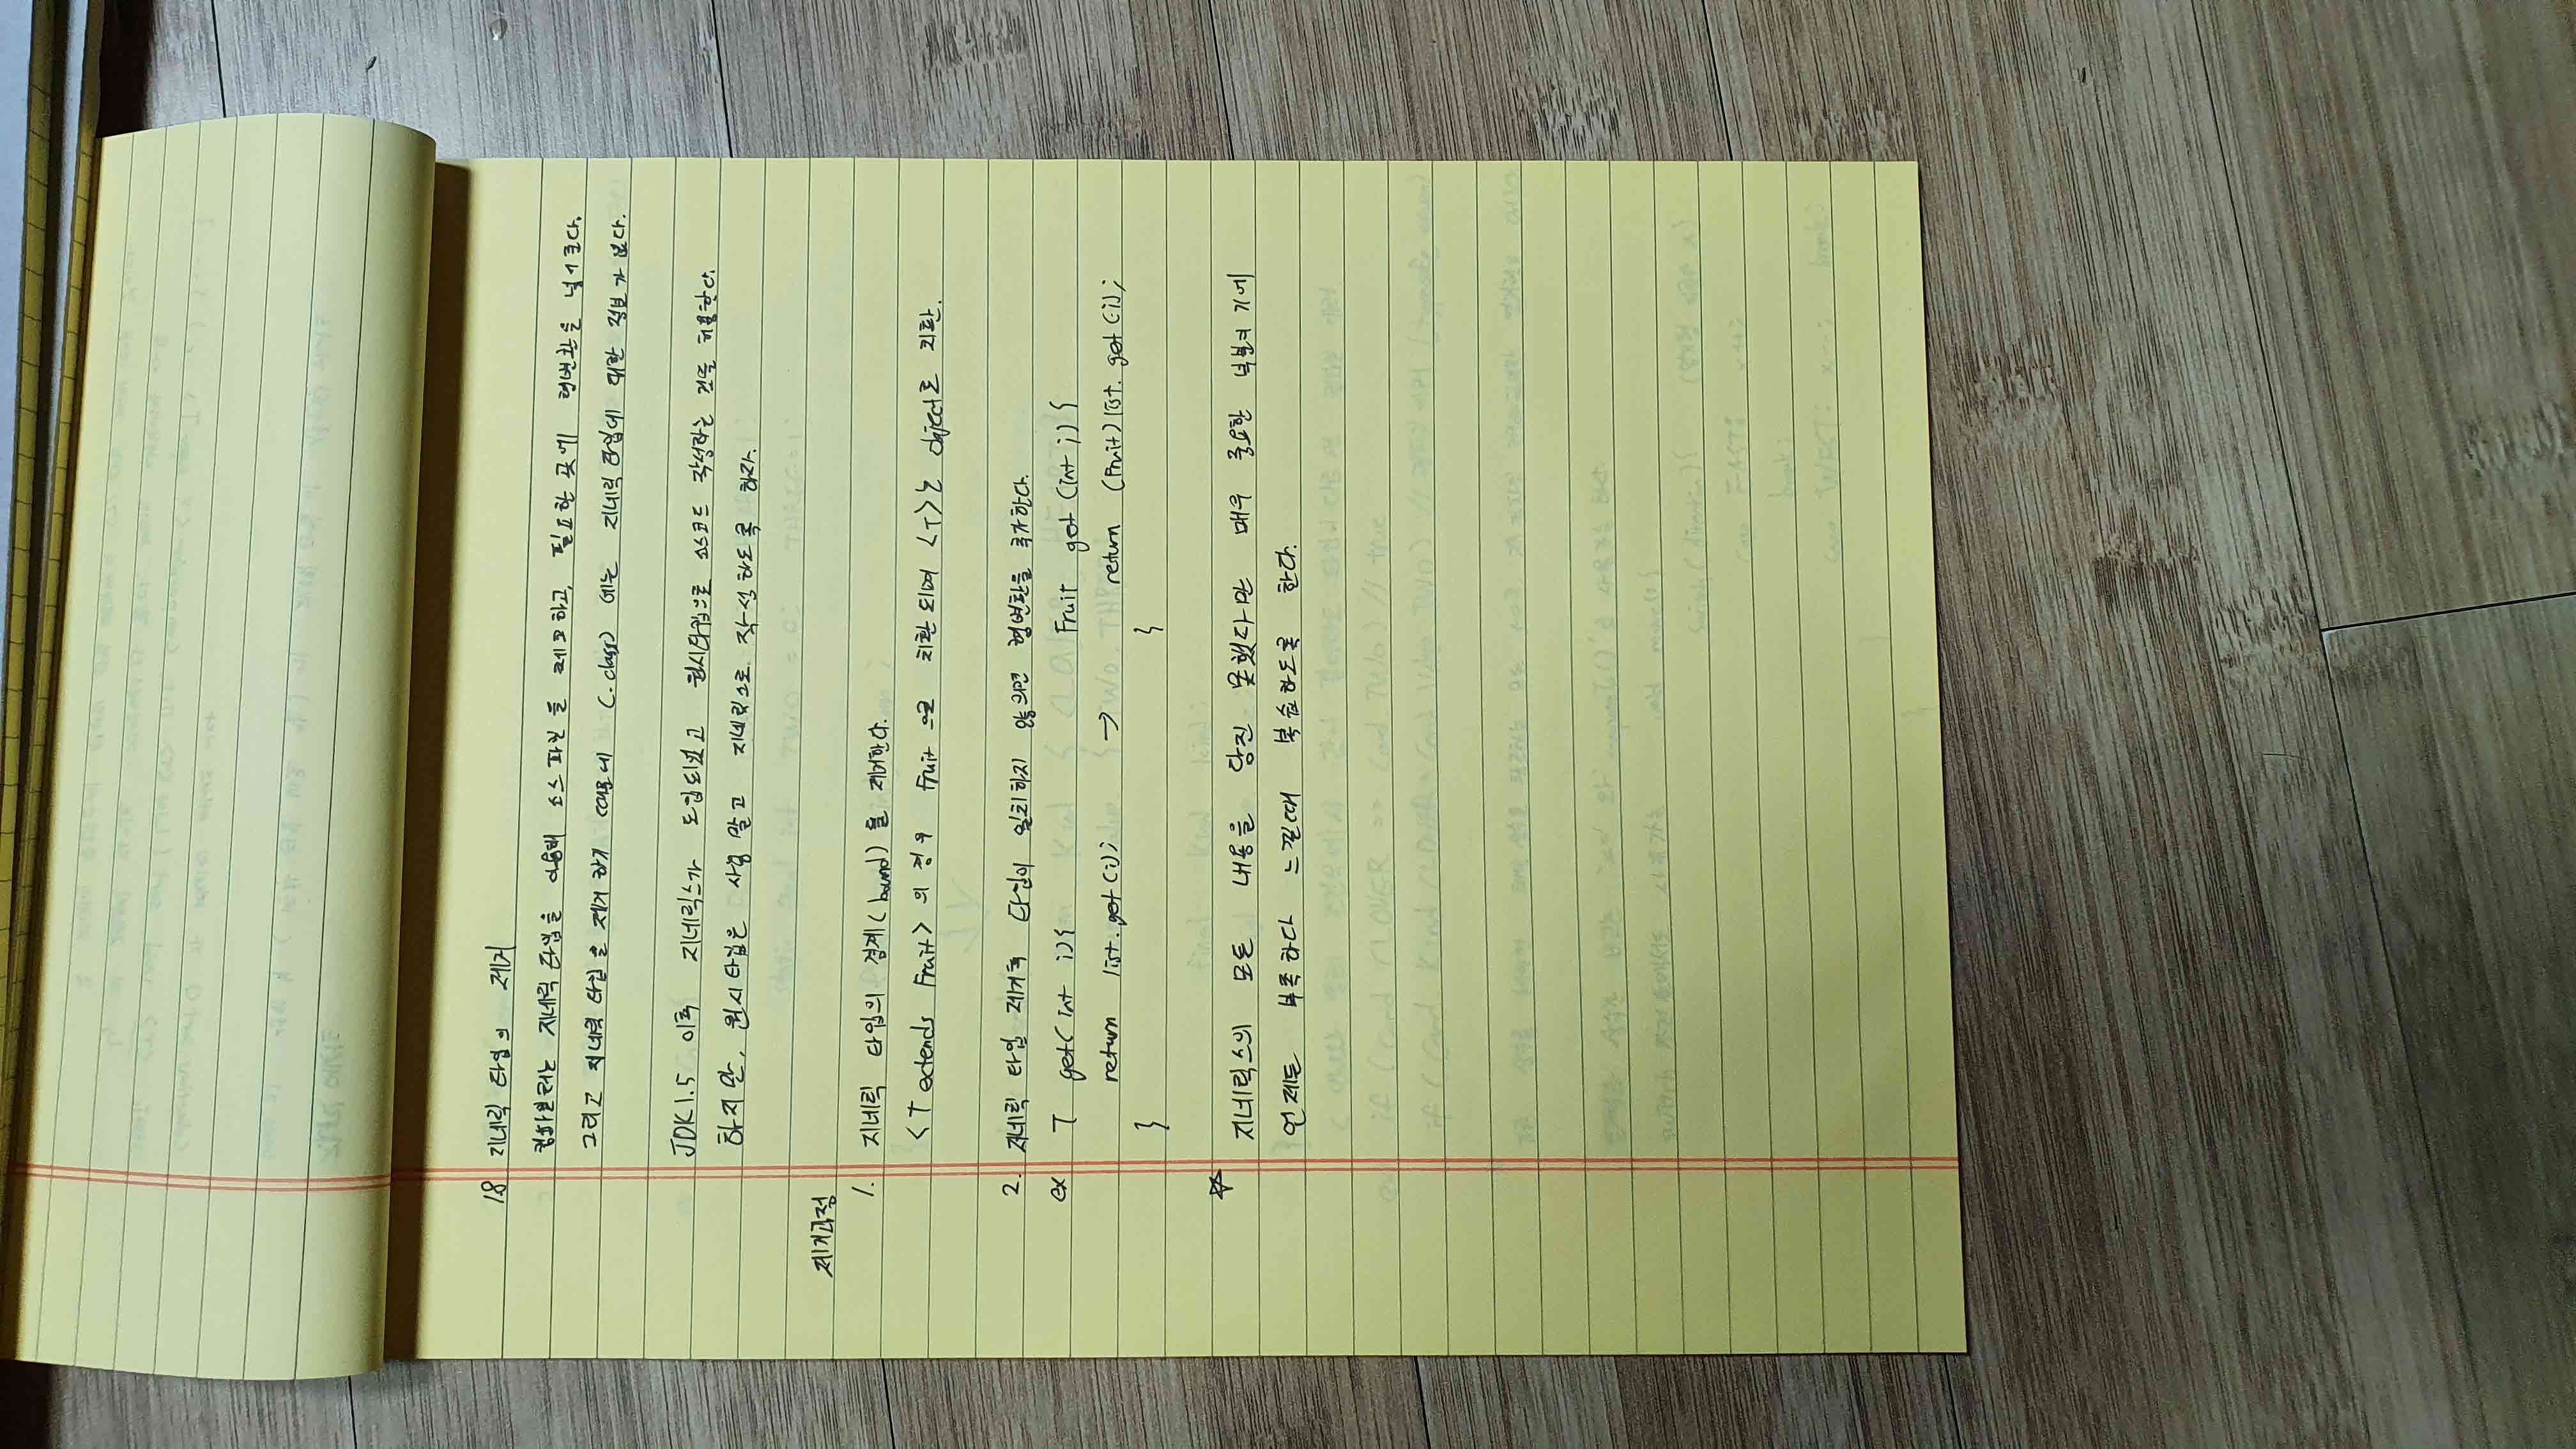 18 지네릭 타입의 제거
컴파일러는 지네릭 타입을 이용해 소스파일을 체크하고, 필요한 곳에 형변환을 넣어준다.
그리고 지네릭 타입을 제거하기 때문에 (.class)에는 지네릭 타입에 대한 정보가 없다.
JDK1.5 이후 지네릭스가 도입되었고 원시타입으로 소스코드 작성하는 것을 허용한다.
하지만, 원시타입은 사용 말고 지네릭스로 작성하도록 하자.
제거과정
1. 지네릭 타입의 경계(bound)를 제거한다.
<T extends Fruit>의 경우 Fruit으로 치환되며 <T>는 object로 치환.
2. 지네릭 타입 제거후 타입이 일치하지 않으면 형변환을 추가한다.
ex T get(int i){ Fruit get(int i){
return list.get(i); → return (Fruit)list.get(i);
} }
☆ 지네릭스의 모든 내용을 담진 못했다만 매우 중요한 부분이기에
언제든 부족하다 느낄때 복습하도록 한다.